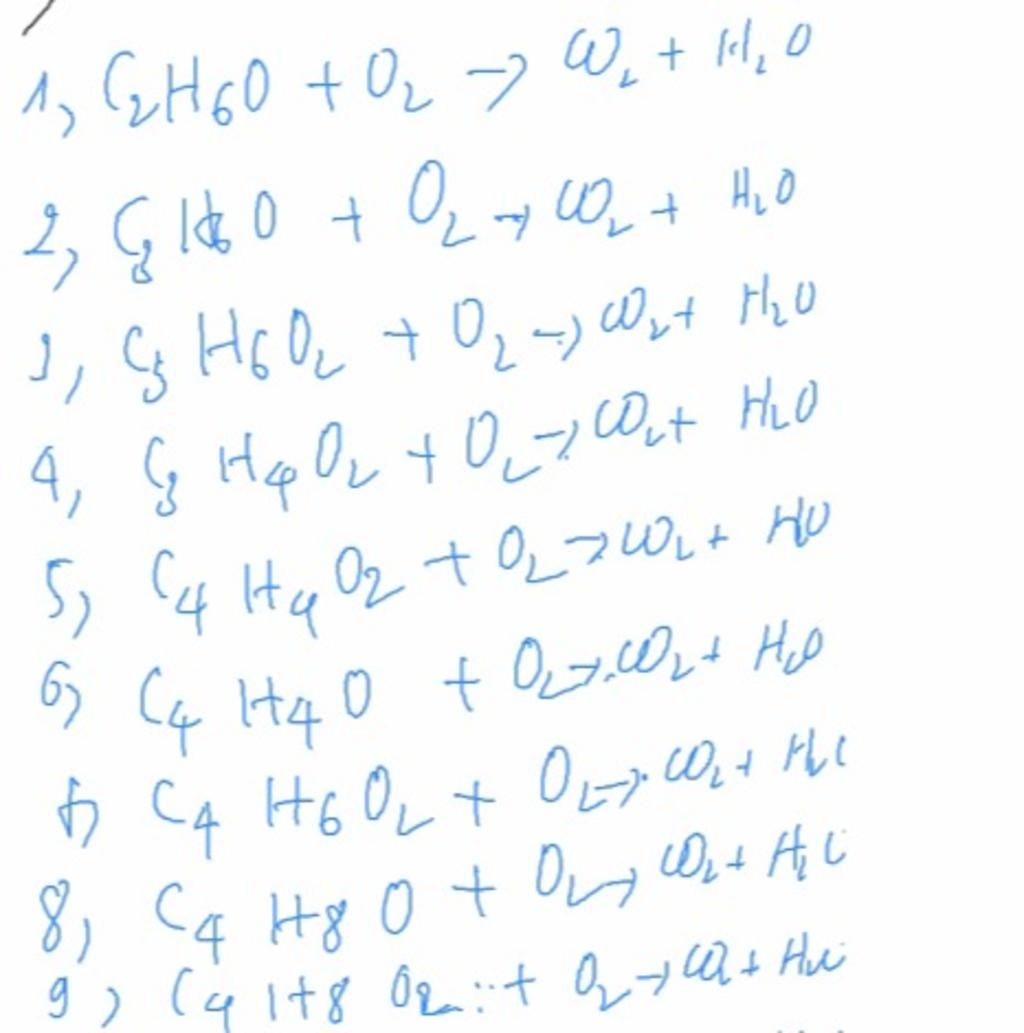 1, C₂H₆O + O₂ → CO₂ + H₂O
2, C₃H₆O + O₂ → CO₂ + H₂O
3, C₃H₆O₂ + O₂ → CO₂ + H₂O
4, C₃H₄O₂ + O₂ → CO₂ + H₂O
5, C₄H₄O₂ + O₂ → CO₂ + H₂O
6, C₄H₄O + O₂ → CO₂ + H₂O
7, C₄H₆O₂ + O₂ → CO₂ + H₂O
8, C₄H₈O + O₂ → CO₂ + H₂O
9, C₄H₈O₂ + O₂ → CO₂ + H₂O